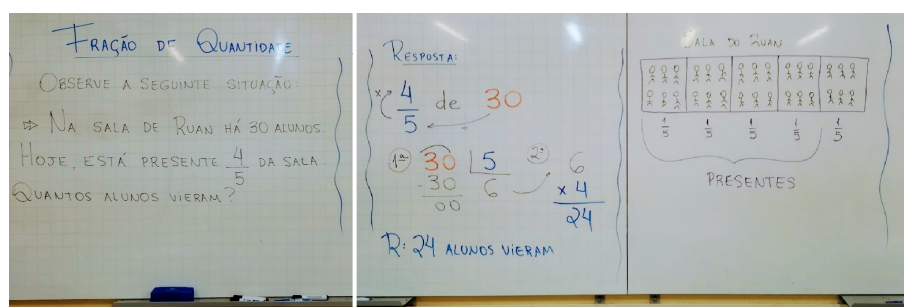 FRAÇÃO DE QUANTIDADE
OBSERVE A SEGUINTE SITUAÇÃO:
⇒ NA SALA DE RUAN HÁ 30 ALUNOS.
HOJE, ESTÁ PRESENTE 4/5 DA SALA.
QUANTOS ALUNOS VIERAM?
RESPOSTA:
x 4/5 de 30
1ª 30 5
-30 6
00
2ª 6
x 4
24
R: 24 ALUNOS VIERAM
SALA DO RUAN
1/5 1/5 1/5 1/5 1/5
PRESENTES